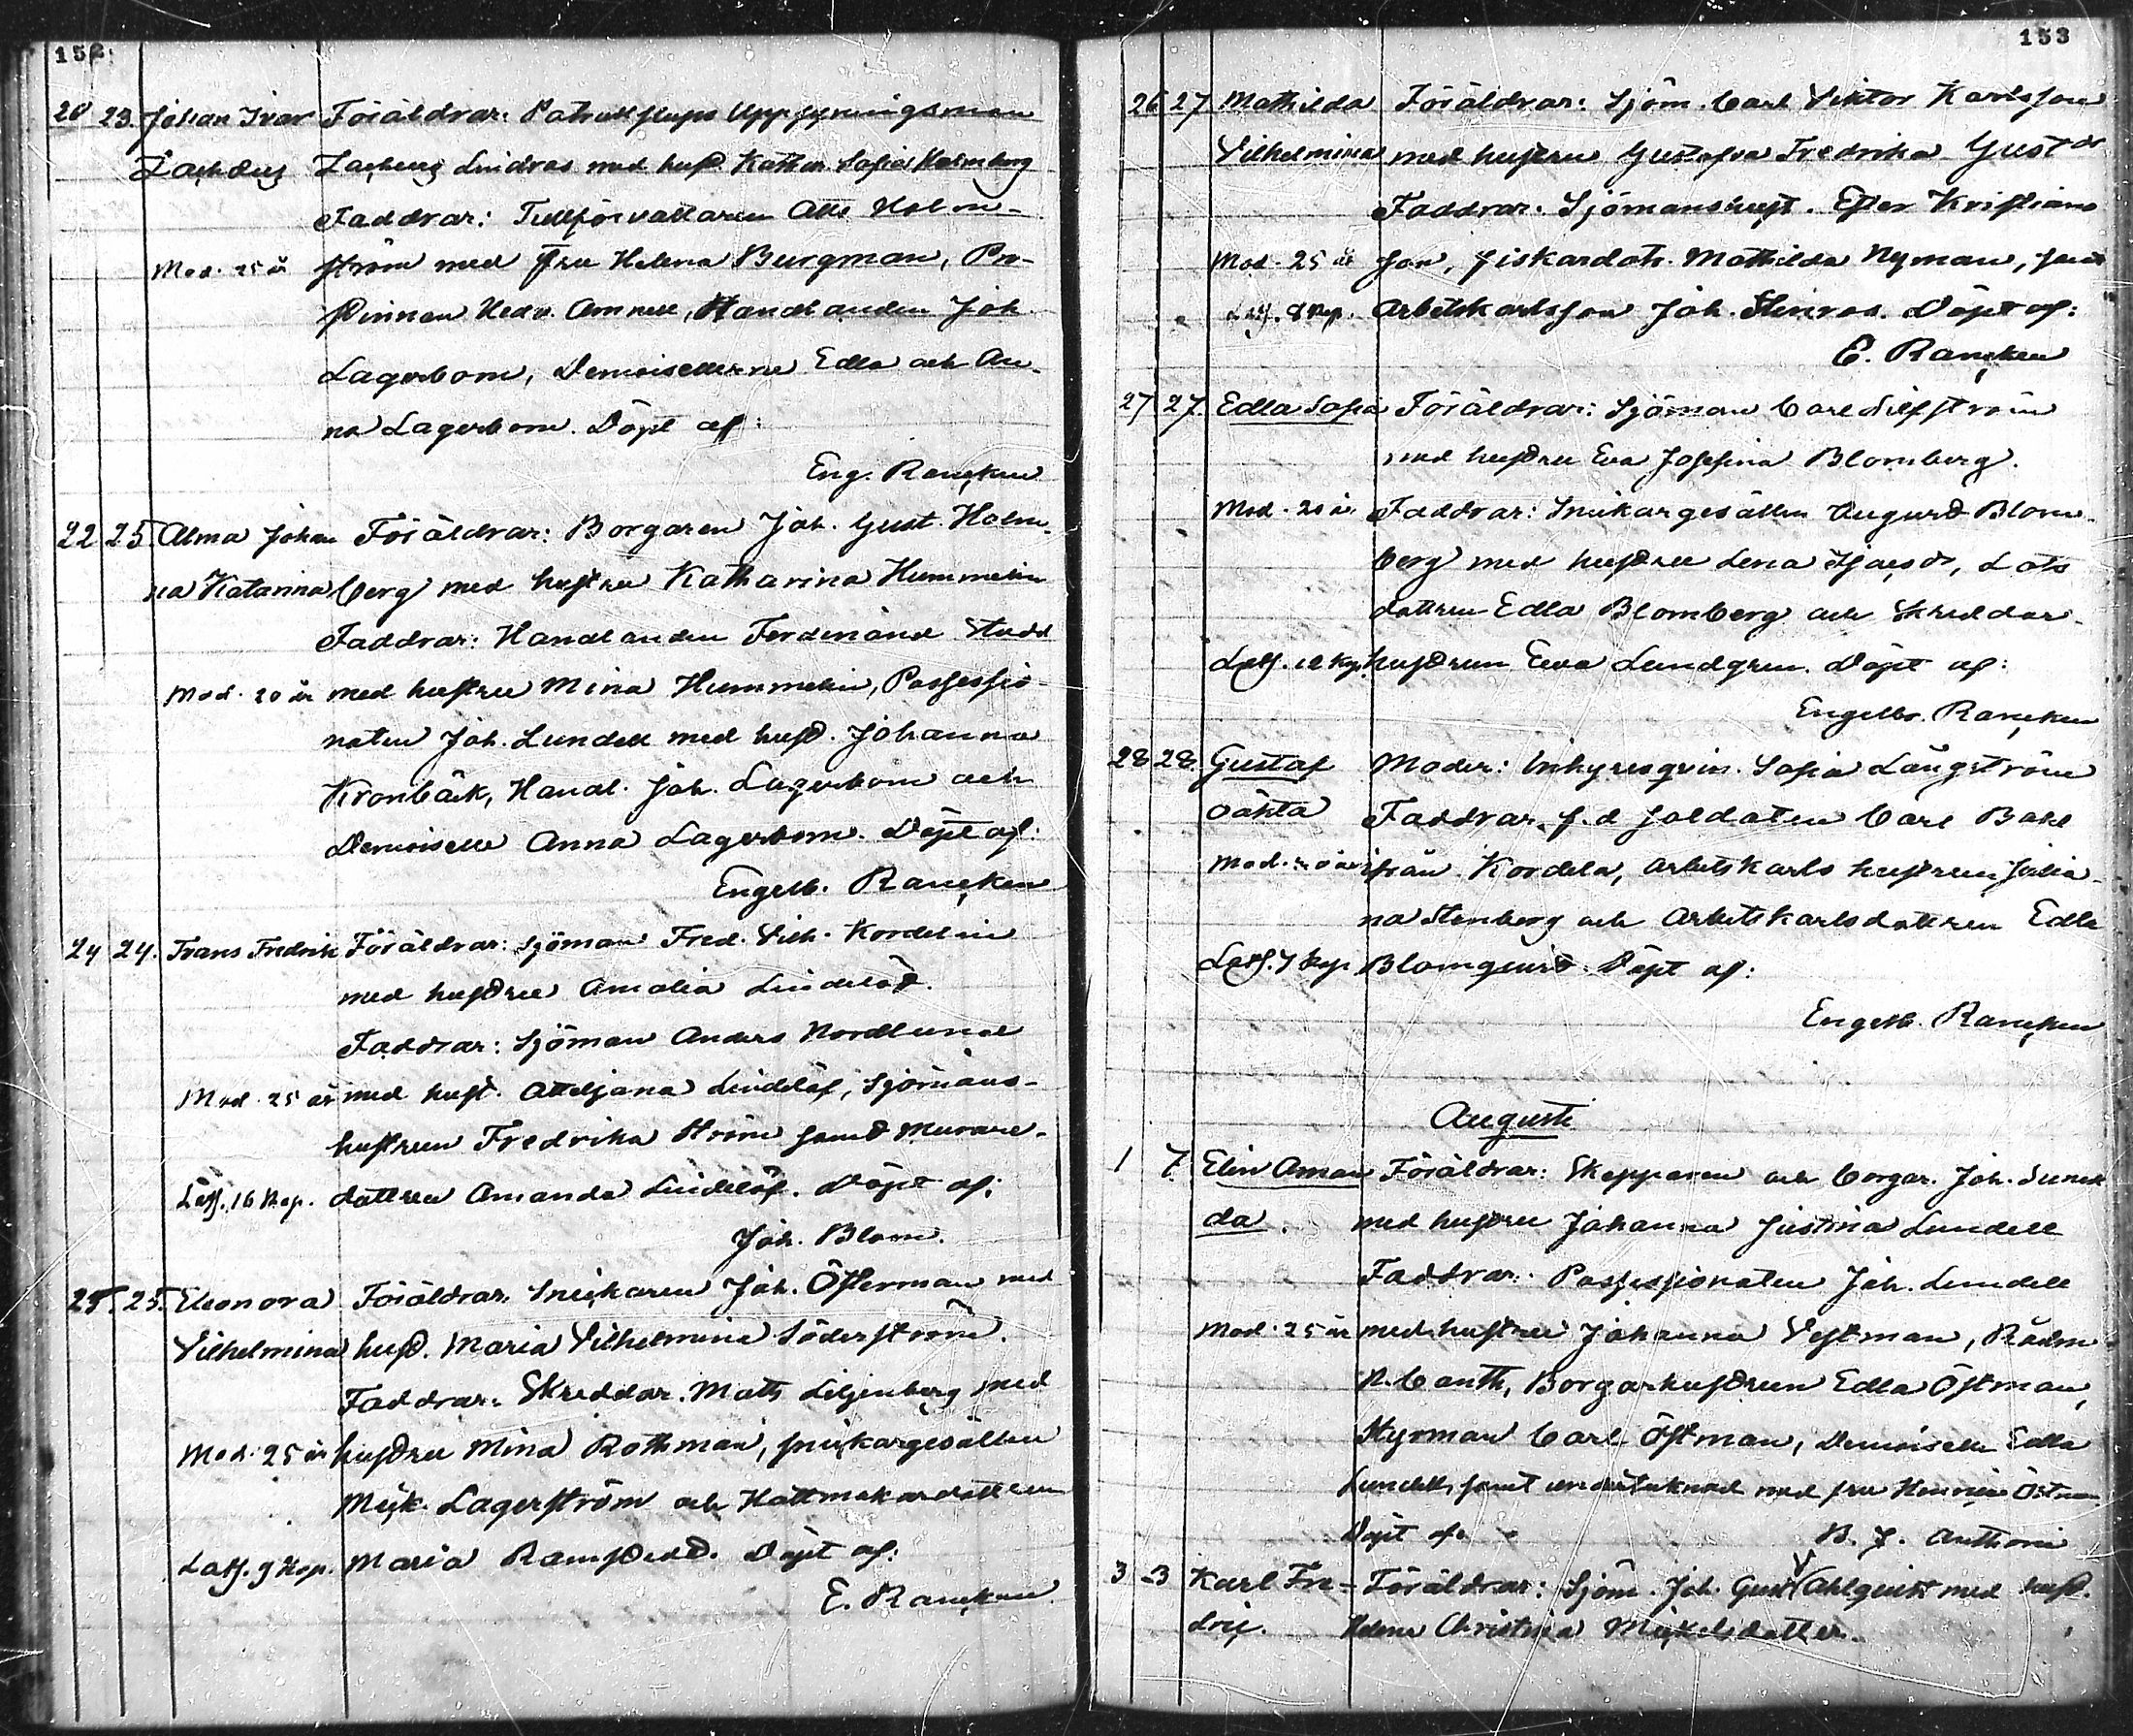 152.
20 23. Johan Ivar Föräldrar: Uppsyningsman
Zacheus Lindros med hust. Kathar. Sofia Holmberg
Faddrar: Tullförvaltaren Holm-
Mod. 25 år ström med fru Helena Burgman, Pro-
stinnan Hedv. Amnell, Handlanden Joh.
Lagerbom, Demoisellerne Edla och An-
na Lagerbom. Döpt af:
Eng. Rancken
22 25. Alma Johan Föräldrar: Borgaren Joh. Gust. Holm-
na Katarina berg med hustru Katharina Hummelin
Faddrar: Handlanden Ferdinand
Mod. 20 år med hustru Mina Hummelin, Possessio-
naten Joh. Lundell med hust. Johanna
Kronbäck, Handl. Joh. Lagerbom och
Demoiselle Anna Lagerbom. Döpt af:
Engelb. Rancken
24 24. Frans Fredrik Föräldrar: Sjöman Fred. Vilh. Kordelin
med hustru Amalia Lindelöf.
Faddrar: Sjöman Anders Nordlund
Mod. 25 år med hust. Lindelöf, Sjömans-
hustrun Fredrika Ström samt Murare-
Latf. 16 Kop. dottren Amanda Lindelöf. Döpt af:
Joh. Blom.
25. 25. Eleonora Föräldrar. Snickaren Joh. Österman med
Vilhelmina hust. Maria Vilhelmina Söderström.
Faddrar: Skreddar. Matts Liljenberg med
Mod. 25 år hustru Mina Rothman, snickargesällen
Mick. Lagerström och Hattmakardottren
Latf. 9 Kop. Maria Ramstedt. Döpt af:
E. Rancken.
153
26 27 Mathilda Föräldrar: Sjöm. Carl Viktor Karlsson
Vilhelmina med hustru Gustafva Fredrika Gustdr
Faddrar: Sjömanshust. Ester Kristians
Mod. 25 år son, fiskardotr. Mathilda Nyman, samt
Latf. 8 Kop. Arbetskarlsson Joh. Stenros. Döpt af:
E. Rancken
27 27. Edla Sofia Föräldrar: Sjöman Carl Silfström
med hustru Eva Josefina Blomberg.
Mod. 20 år. Faddrar: Snickargesällen August Blom-
berg med hustru Lena, Lots
dottren Edla Blomberg och Skreddar-
Latf. 12 Kop. hustrun Eva Lundgren. Döpt af:
Engelbr. Rancken
28 28. Gustaf Moder: Inhyresqvin. Sofia Långström
oäkta Faddrar. f.d soldaten Carl
Mod. ifrån Kordela, arbetskarls hustrun Julia-
na Stenberg och Arbetskarlsdottren Edla
Latf. 7 Kop. Blomqvist. Döpt af:
Engelb. Rancken
Augusti
1 7. Elin Aman Föräldrar: Skepparen och borgar. Joh.
da. med hustru Johanna Justina Lundell
Faddrar: Possessionaten Joh. Lundell
Mod. 25 år med hustru Johanna Vestman, Rådm.
N. Canth, Borgarhustrun Edla Östman,
Styrman Carl Östman, Demoiselle Edla
Lundell, samt undertecknad med fru Östman.
Döpt af: B. J. Anthoni
3 3 Karl Fre- Föräldrar: Sjöm. Joh. Gust. Ahlqvist med hust.
dric. Helena Christina Mickelsdotter.